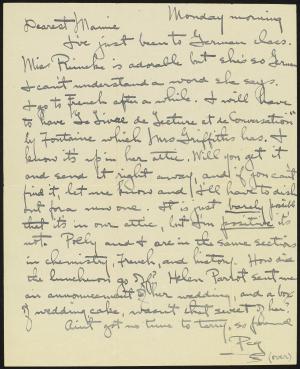 Monday morning
Dearest Mamie
I've just been to German class.
Miss Reincke is adorable but she's so German
I can't understand a word she says.
I go to French after a while. I will have
to have "Le Livre de Lecture et de Conversation"
by Fontaine which Mrs Griffiths has. I
know it's up in her attic. Will you get it
and send it right away, and if you can't
find it let me know and I'll have to dish
out for a new one. It is just barely possible
that it's in our attic, but I'm positive it's
not. Polly and I are in the same sections
in chemistry, French, and history. How did
the luncheon go off? Helen Parrot sent me
an announcement of her wedding, and a box
of wedding cake, wasn't that sweet of her?
Ain't got no time to tarry, so
Peg
(over)